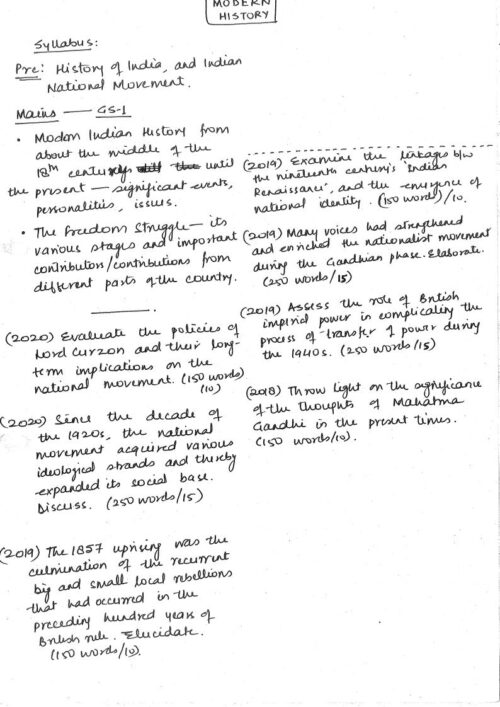 MODERN
HISTORY
Syllabus:
Pre: History of India, and Indian
National Movement.
Mains — GS-1
• Modern Indian History from
about the middle of the
18th century until
the present — significant events,
personalities, issues.
• The Freedom Struggle — its
various stages and important
contributors/contributions from
different parts of the country.
(2020) Evaluate the policies of
Lord Curzon and their long-
term implications on the
national movement. (150 words)
(10)
(2020) Since the decade of
the 1920s, the national
movement acquired various
ideological strands and thereby
expanded its social base.
Discuss. (250 words/15)
(2019) The 1857 uprising was the
culmination of the recurrent
big and small local rebellions
that had occurred in the
preceding hundred years of
British rule. Elucidate.
(150 words/10).
(2019) Examine the linkages b/w
the nineteenth century's 'Indian
Renaissance', and the emergence of
national identity. (150 word)/10.
(2019) Many voices had strengthened
and enriched the nationalist movement
during the Gandhian phase. Elaborate.
(250 words/15)
(2019) Assess the role of British
imperial power in complicating the
process of transfer of power during
the 1940s. (250 words/15)
(2018) Throw light on the significance
of the thoughts of Mahatma
Gandhi in the present times.
(150 words/10).